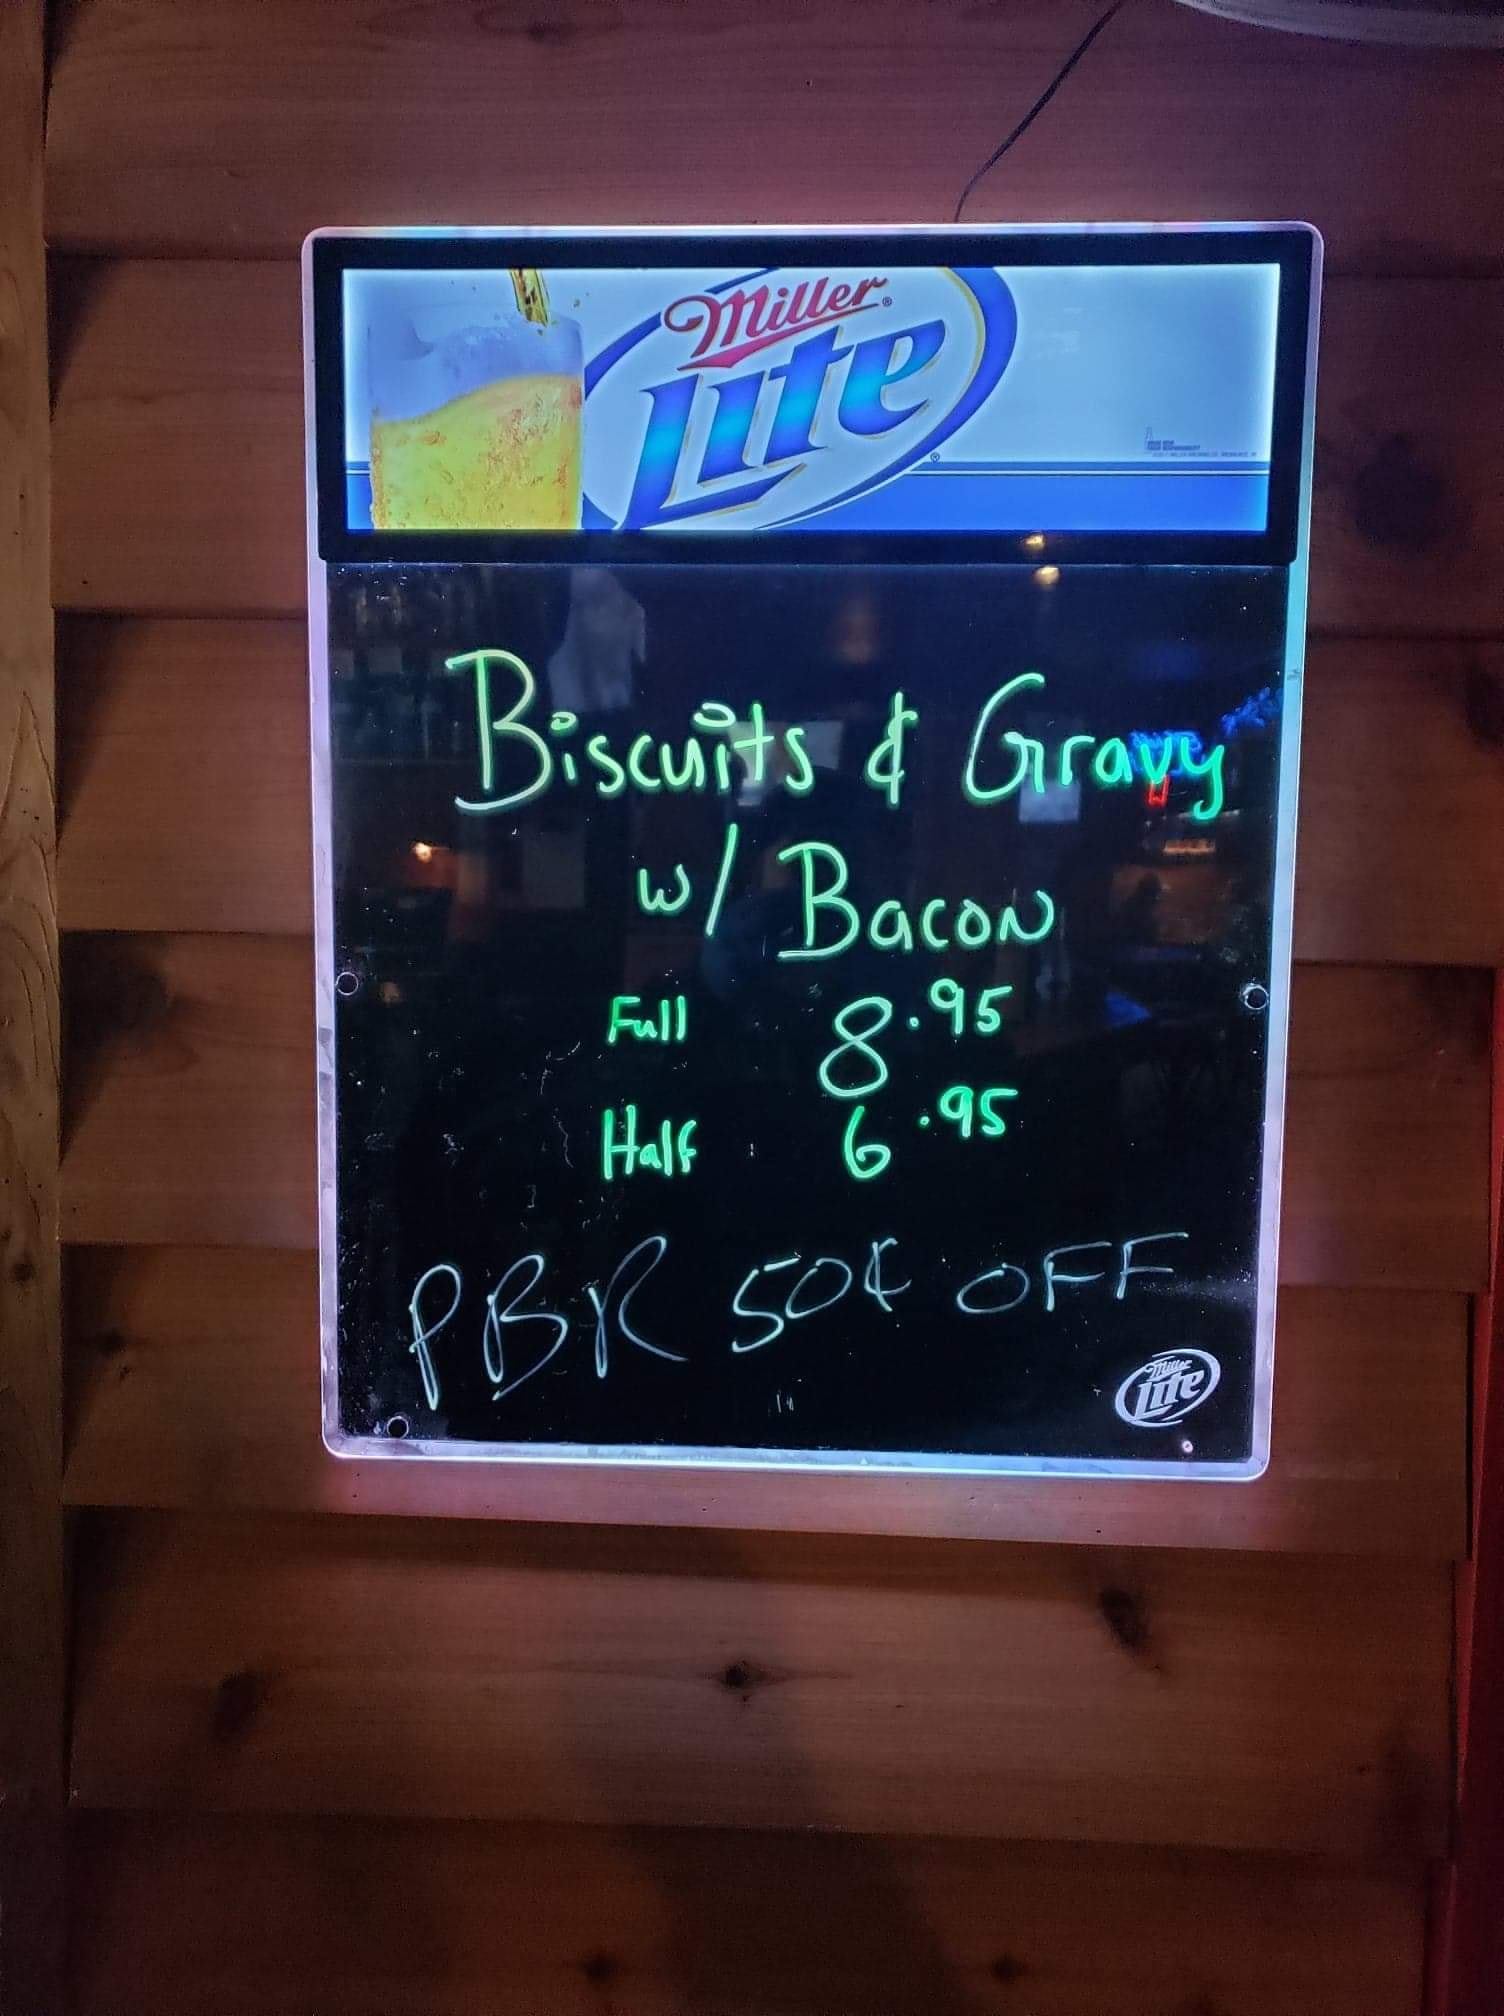 Miller
Lite
Biscuits & Gravy
w/ Bacon
Full 8.95
Half 6.95
PBR 50¢ OFF
Miller
Lite